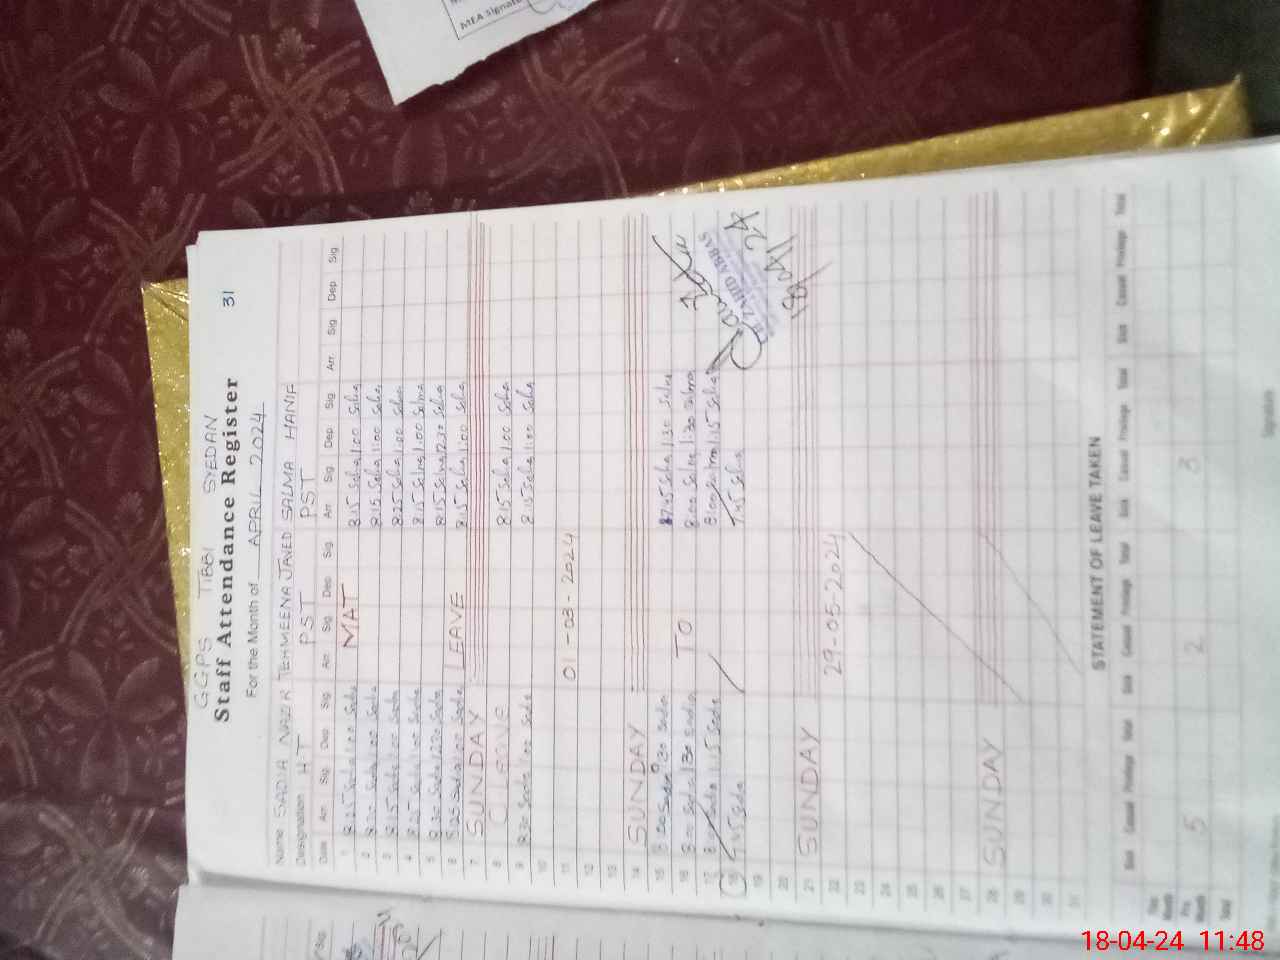 MEA Signatu
GGPS TIBBI SYEDAN
Staff Attendance Register 31
For the Month of APRIL 2024
Name SADIA NAZIR TEHMEENA JAVED SALMA HANIF
Designation HT PST PST
Date Arr. Sig. Dep. Sig. Arr. Sig. Dep. Sig. Arr. Sig. Dep. Sig. Arr. Sig. Dep. Sig.
1 8:25 Sadia 1:00 Sadia MAT 8:15 Selna 1:00 Selna
2 8:20 Sadia 1:00 Sadia 8:15 Selna 1:00 Selna
3 8:15 Sadia 1:00 Sadia 8:25 Selna 1:00 Selna
4 8:25 Sadia 1:00 Sadia 8:15 Selna 1:00 Selna
5 8:30 Sadia 12:30 Sadia 8:15 Selna 12:30 Selna
6 8:25 Sadia 1:00 Sadia LEAVE 8:15 Selna 1:00 Selna
7 SUNDAY
8 C. LEAVE 8:15 Selna 1:00 Selna
9 8:30 Sadia 1:00 Sadia 8:15 Selna 1:00 Selna
10
11 01-03-2024
12
13
14 SUNDAY
15 Sadia 1:30 Sadia Selna 1:30 Selna
16 8:00 Sadia 1:30 Sadia TO 8:00 Selna 1:30 Selna
17 8:00 Sadia 1:15 Sadia 8:00 Selna 1:15 Selna
18 7:45 Sadia 7:45 Selna
ZAHID ABBAS
19
20
21 SUNDAY
22 29-05-2024
23
24
25
26
27
28 SUNDAY
29
30
31
STATEMENT OF LEAVE TAKEN
Sick Casual Privilege Total Sick Casual Privilege Total Sick Casual Privilege Total Sick Casual Privilege Total
This Month
Pre. Month 5 2 3
Total
Signature
18-04-24 11:48